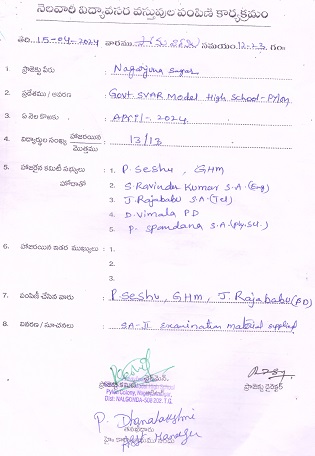 నెలవారి విద్యావసర వస్తువుల పంపిణి కార్యక్రమం
తేది. 15-04-2024 వారము సమయం. 12-23 గం
1. ప్రాజెక్టు పేరు : Nagarjuna Sagar
2. ప్రదేశము / ఆవరణ : Govt. SVAR Model High School-Pylon
3. ఏ నెల కొరకు : APril-2024
4. విద్యార్థుల సంఖ్య హాజరయిన / మొత్తము : 13/13
5. హాజరైన కమిటి సభ్యులు : 1. P. Seshu, GHM
హోదాతో 2. S. Ravinder Kumar S.A-(Eng)
3. J. Rajababu S.A-(Tel)
4. D. Vimala PD
5. P. Spandana S.A-(Phy.Sci.)
6. హాజరయిన ఇతర ముఖ్యులు : 1.
2.
3.
7. పంపిణి చేసిన వారు : P Seshu, GHM, J. Rajababu
8. వివరణ / సూచనలు : SA-II Examination material supplied
ప్రాజెక్టు కమిటీ చైర్మన్.
ప్రాజెక్టు డైరెక్టర్
Pylon Colony, Nagarjuna
Dist: NALGONDA-508 202. T.G.
P. Dhanalakshmi
Manager